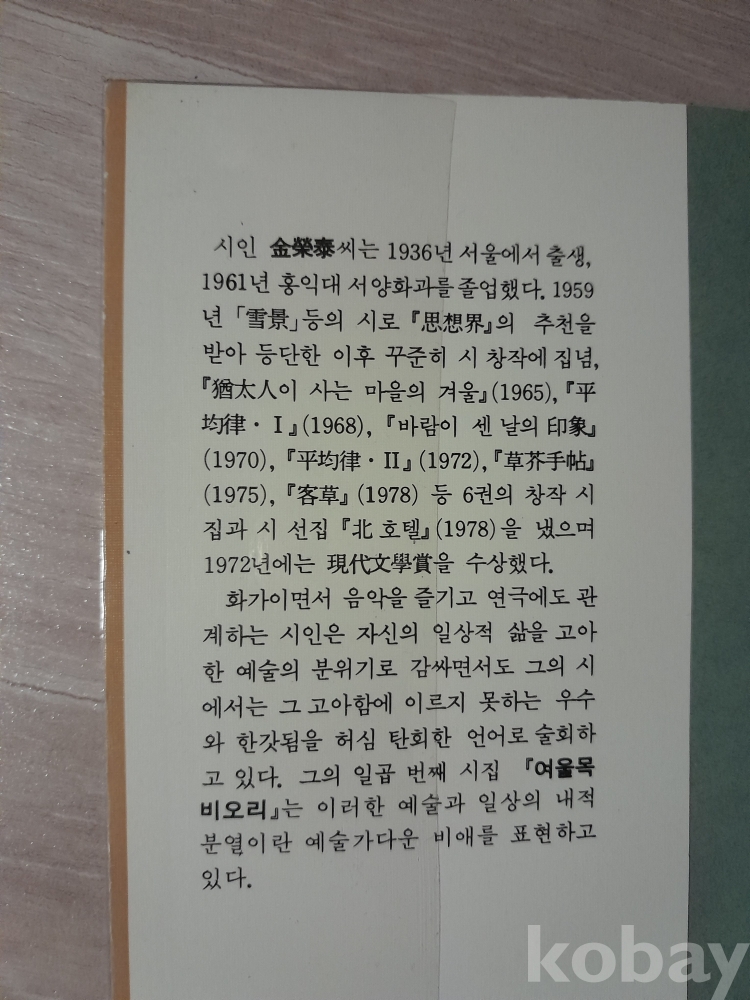 시인 金榮泰씨는 1936년 서울에서 출생,
1961년 홍익대 서양화과를 졸업했다. 1959
년 「雪景」등의 시로 『思想界』의 추천을
받아 등단한 이후 꾸준히 시 창작에 집념,
『猶太人이 사는 마을의 겨울』(1965), 『平
均律·Ⅰ』(1968), 『바람이 센 날의 印象』
(1970), 『平均律·Ⅱ』(1972), 『草芥手帖』
(1975), 『客草』(1978) 등 6권의 창작 시
집과 시 선집 『北 호텔』(1978)을 냈으며
1972년에는 現代文學賞을 수상했다.
화가이면서 음악을 즐기고 연극에도 관
계하는 시인은 자신의 일상적 삶을 고아
한 예술의 분위기로 감싸면서도 그의 시
에서는 그 고아함에 이르지 못하는 우수
와 한갓됨을 허심 탄회한 언어로 술회하
고 있다. 그의 일곱 번째 시집 『여울목
비오리』는 이러한 예술과 일상의 내적
분열이란 예술가다운 비애를 표현하고
있다.
kobay